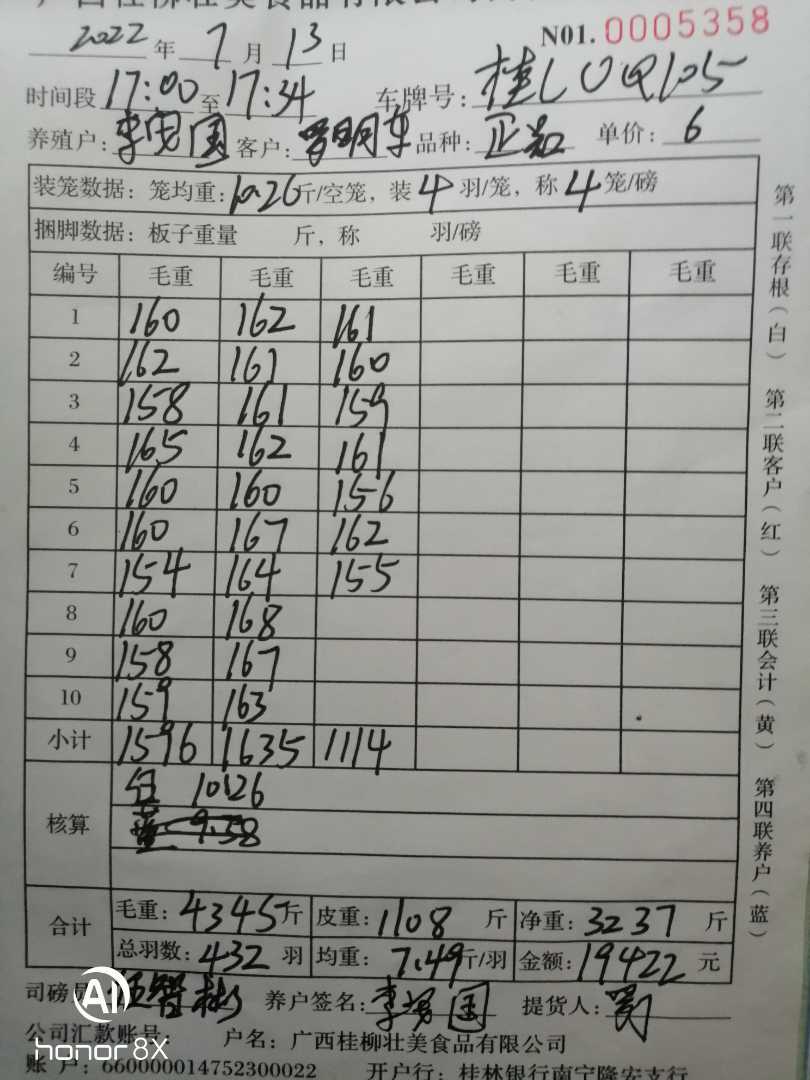 广西桂柳壮美食品有限公司
2022年7月13日 N01.0005358
时间段17:00至17:34 车牌号:桂LUQ105
养殖户:李勇国 客户: 品种: 单价:6
装笼数据:笼均重:10.26斤/空笼,装4羽/笼,称4笼/磅
捆脚数据:板子重量 斤,称 羽/磅
编号 毛重 毛重 毛重 毛重 毛重 毛重
1 160 162 161
2 162 161 160
3 158 161 159
4 165 162 161
5 160 160 156
6 160 167 162
7 154 164 155
8 160 168
9 158 167
10 159 163
小计 1596 1635 1114
核算 10.26
9.58
合计 毛重:4345斤 皮重:1108斤 净重:3237斤
总羽数:432羽 均重:7.49斤/羽 金额:19422元
司磅员: 养户签名:李勇国 提货人:
公司汇款账号: 户名:广西桂柳壮美食品有限公司
账 户:660000014752300022 开户行:桂林银行南宁隆安支行
第一联存根(白) 第二联客户(红) 第三联会计(黄) 第四联养户(蓝)
AI
honor 8X